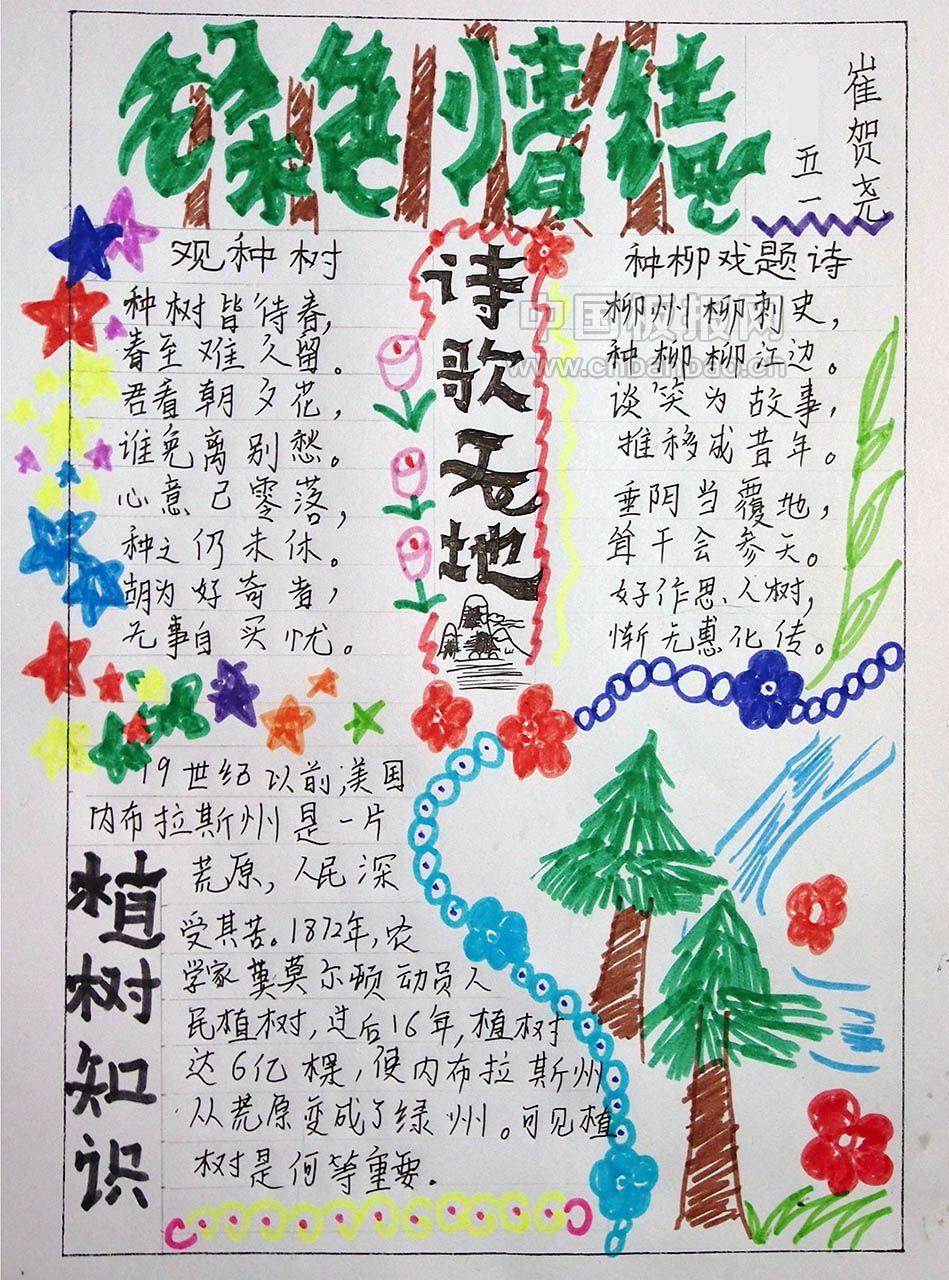 绿色情结
崔贺尧
五一
观种树
种树皆待春，
春至难久留。
君看朝夕花，
谁免离别愁。
心意已零落，
种之仍未休。
胡为好奇者，
无事自买忧。
诗歌天地
种柳戏题诗
柳州柳刺史，
种柳柳江边。
谈笑为故事，
推移成昔年。
垂阴当覆地，
耸干会参天。
好作思人树，
惭无惠化传。
中国板报网
www.chbanbao.cn
植树知识
19世纪以前，美国
内布拉斯州是一片
荒原，人民深
受其苦。1872年，农
学家莫尔顿动员人
民植树，过后16年，植树
达6亿棵，使内布拉斯州
从荒原变成了绿州。可见植
树是何等重要.